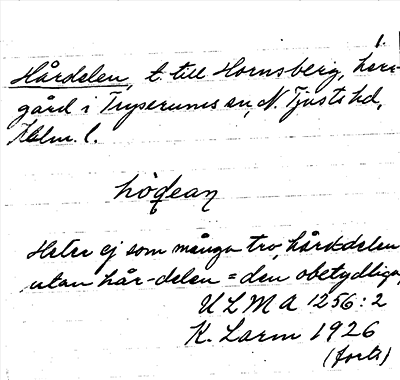 1.
Hårdelen, t. till Hornsberg, herr-
gård i Tryserums sn, N. Tjusts hd,
Kalm. l.
hò̱dean
Heter ej som många tro, hård-delen
utan hår-delen = den obetydliga,
ULMA 1256:2
K. Larm 1926
(forts)